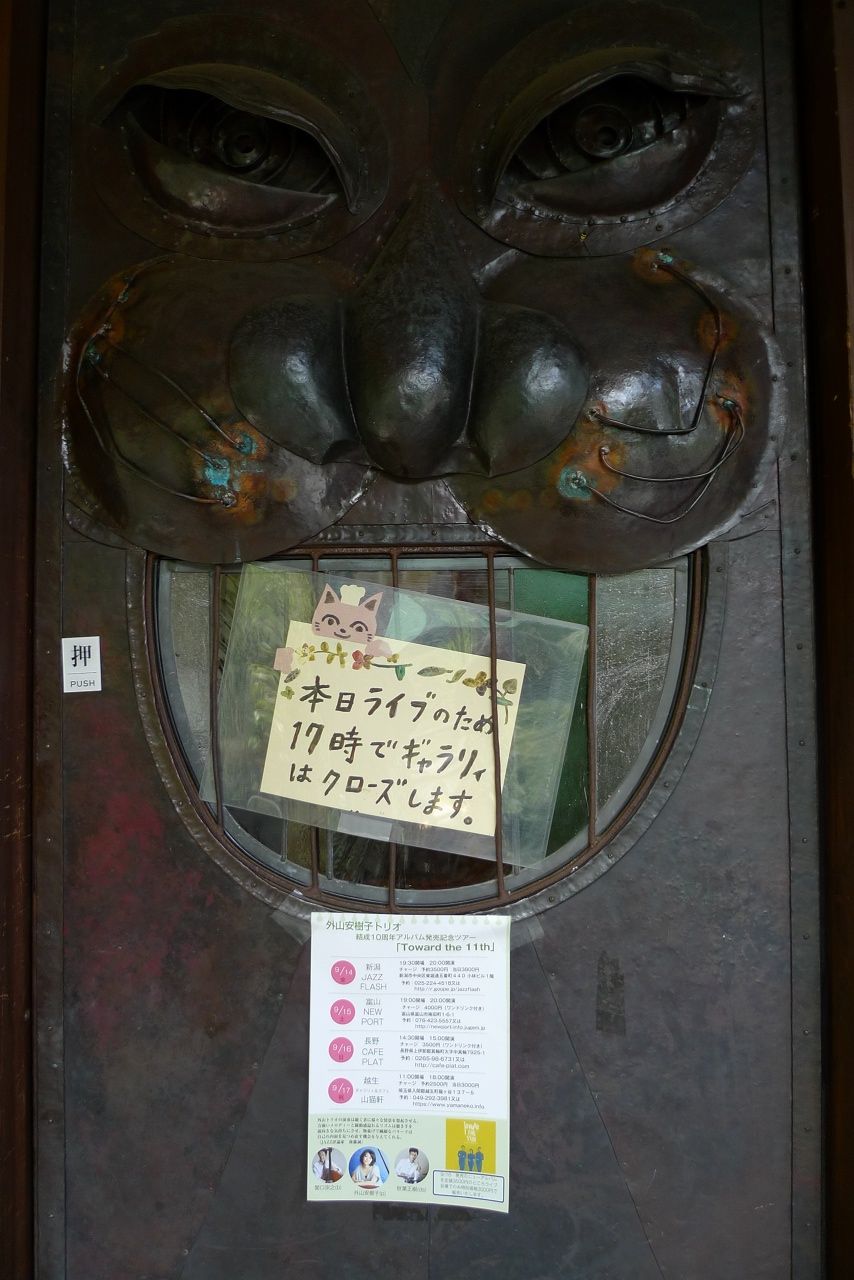 押
PUSH
本日ライブのため
17時でギャラリィ
はクローズします。
外山安樹子トリオ
結成10周年アルバム発売記念ツアー
「Toward the 11th」
9/14
新潟
JAZZ
FLASH
19:30開場 20:00開演
チャージ 予約3500円 当日3800円
予約:025-224-4518又は
9/15
富山
NEW
PORT
19:00開場 20:00開演
チャージ 4000円(ワンドリンク付き)
予約:076-423-5557又は
http://newport-info.jugem.jp
9/16
長野
CAFE
PLAT
14:30開場 15:00開演
チャージ 3500円(ワンドリンク付き)
予約:0265-98-6731又は
http://cafe-plat.com
9/17
越生
山猫軒
11:00開場 18:00開演
チャージ 予約2500円 当日3000円
予約:049-292-3981又は
https://www.yamaneko.info
外山安樹子(p)